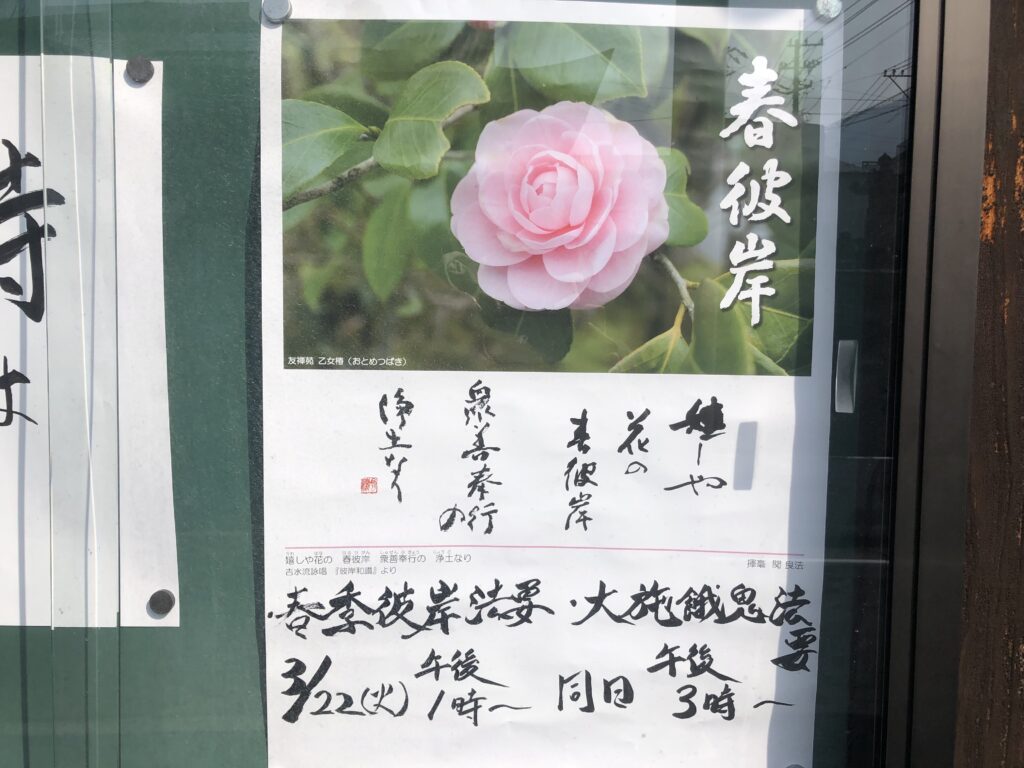 春彼岸
友禅苑 乙女椿（おとめつばき）
嬉しや
花の
春彼岸
衆善奉行の
浄土なり
嬉しや花の 春彼岸 衆善奉行の 浄土なり
吉水流詠唱 『彼岸和讃』より
揮毫 関 良法
・春季彼岸法要
3/22(火) 午後1時〜
・大施餓鬼法要
同日 午後3時〜
寺
は